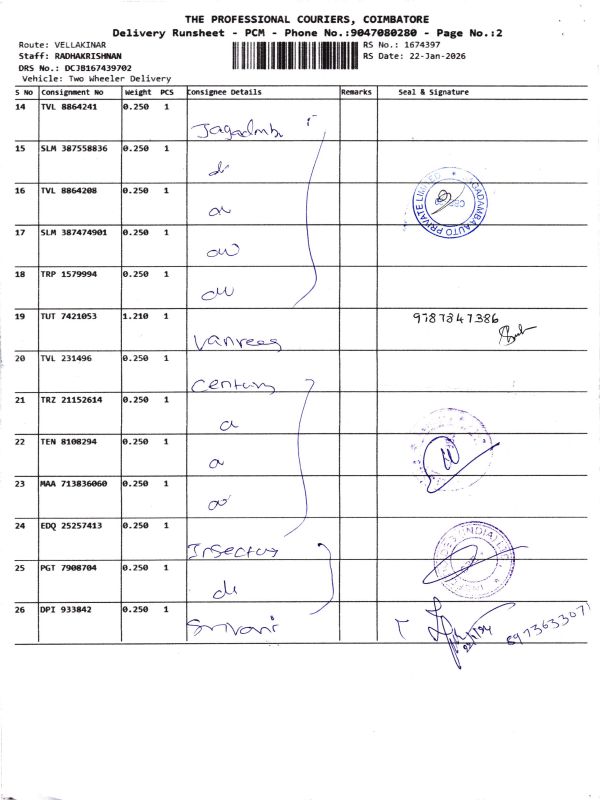 THE PROFESSIONAL COURIERS, COIMBATORE
Delivery Runsheet - PCM - Phone No.:9047080280 - Page No.:2
Route: VELLAKINAR
RS No.: 1674397
Staff: RADHAKRISHNAN
RS Date: 22-Jan-2026
DRS No.: DCJB167439702
Vehicle: Two Wheeler Delivery
S No Consignment No Weight PCS Consignee Details Remarks Seal & Signature
14 TVL 8864241 0.250 1 Jagadmbi
15 SLM 387558836 0.250 1
16 TVL 8864208 0.250 1
JAGADAMBA AUTO PRIVATE LIMITED
17 SLM 387474901 0.250 1
18 TRP 1579994 0.250 1
19 TUT 7421053 1.210 1 Vanrees 9787347386
20 TVL 231496 0.250 1 Century
21 TRZ 21152614 0.250 1
22 TEN 8108294 0.250 1
23 MAA 713836060 0.250 1
24 EDQ 25257413 0.250 1 Insectus
(INDIA)
25 PGT 7908704 0.250 1
26 DPI 933842 0.250 1 Srivari 8973633071